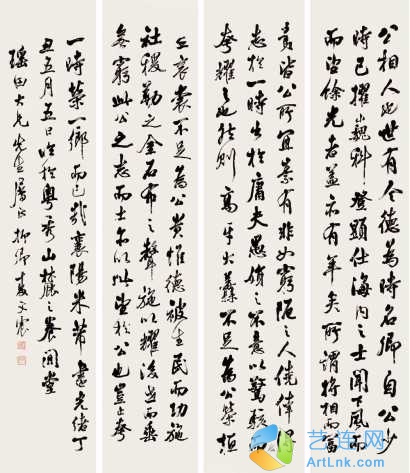 公相人也世有令德為時名卿自公少
時已擢巍科登顯仕海內之士聞下風而
而望餘光者蓋亦有年矣所謂將相而富
貴皆公所宜素有非如窮阨之人僥倖得
志於一時出於庸夫愚婦之不意以驚駭而
夸耀之也然則高牙大纛不足為公榮桓
圭袞裳不足為公貴惟德被生民而功施
社稷勒之金石布之聲施以耀後世而垂
無窮此公之志而士亦以此望於公也豈止夸
一時榮一鄉而已哉襄陽米芾書光緒丁
丑五月五日臨於粵秀山麓之養閒堂
瑤田大兄先生屬正柳
艺连网
ArtLnk.com